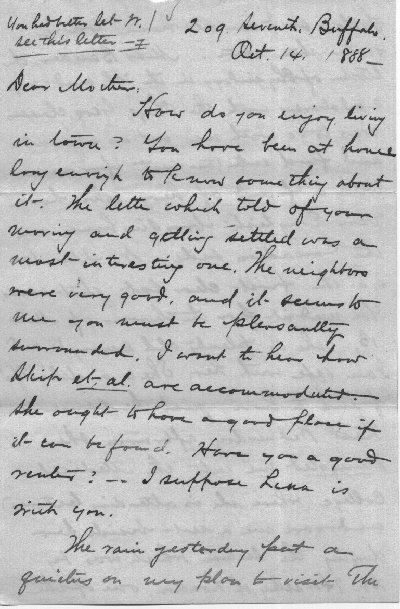 You had better let W.
see this letter - I
209 Seventh. Buffalo.
Oct. 14. 1888 -
Dear Mother.
How do you enjoy living
in town? You have been at home
long enough to know something about
it. The lette which told of your
moving and getting settled was a
most interesting one. The neighbors
were very good, and it seems to
me you must be pleasantly
surrounded. I want to hear how
Skip et. al. are accommodated. -
She ought to have a good place if
it can be found. Have you a good
renter? -- I suppose Lena is
with you.
The rain yesterday put a
quietus on my plan to visit the